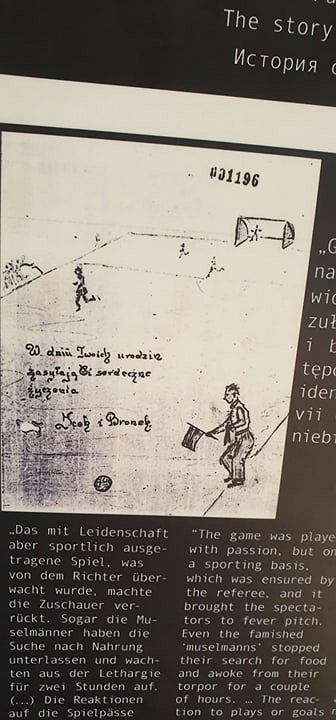 The story
История
pa1196
W dniu Twoich urodzin
zasyłają Ci serdeczne
życzenia
i Bronek
„G
na
wi
zu
i b
tępo
iden
vii
niebi
„Das mit Leidenschaft
aber sportlich ausge-
tragene Spiel, was
von dem Richter über-
wacht wurde, machte
die Zuschauer ver-
rückt. Sogar die Mu-
selmänner haben die
Suche nach Nahrung
unterlassen und wach-
ten aus der Lethargie
für zwei Stunden auf.
(…) Die Reaktionen
auf die Spielpässe
“The game was playe
with passion, but on
a sporting basis,
which was ensured by
the referee, and it
brought the specta-
tors to fever pitch.
Even the famished
'muselmanns' stopped
their search for food
and awoke from their
torpor for a couple
of hours. … The reac-
tion to plays or goals